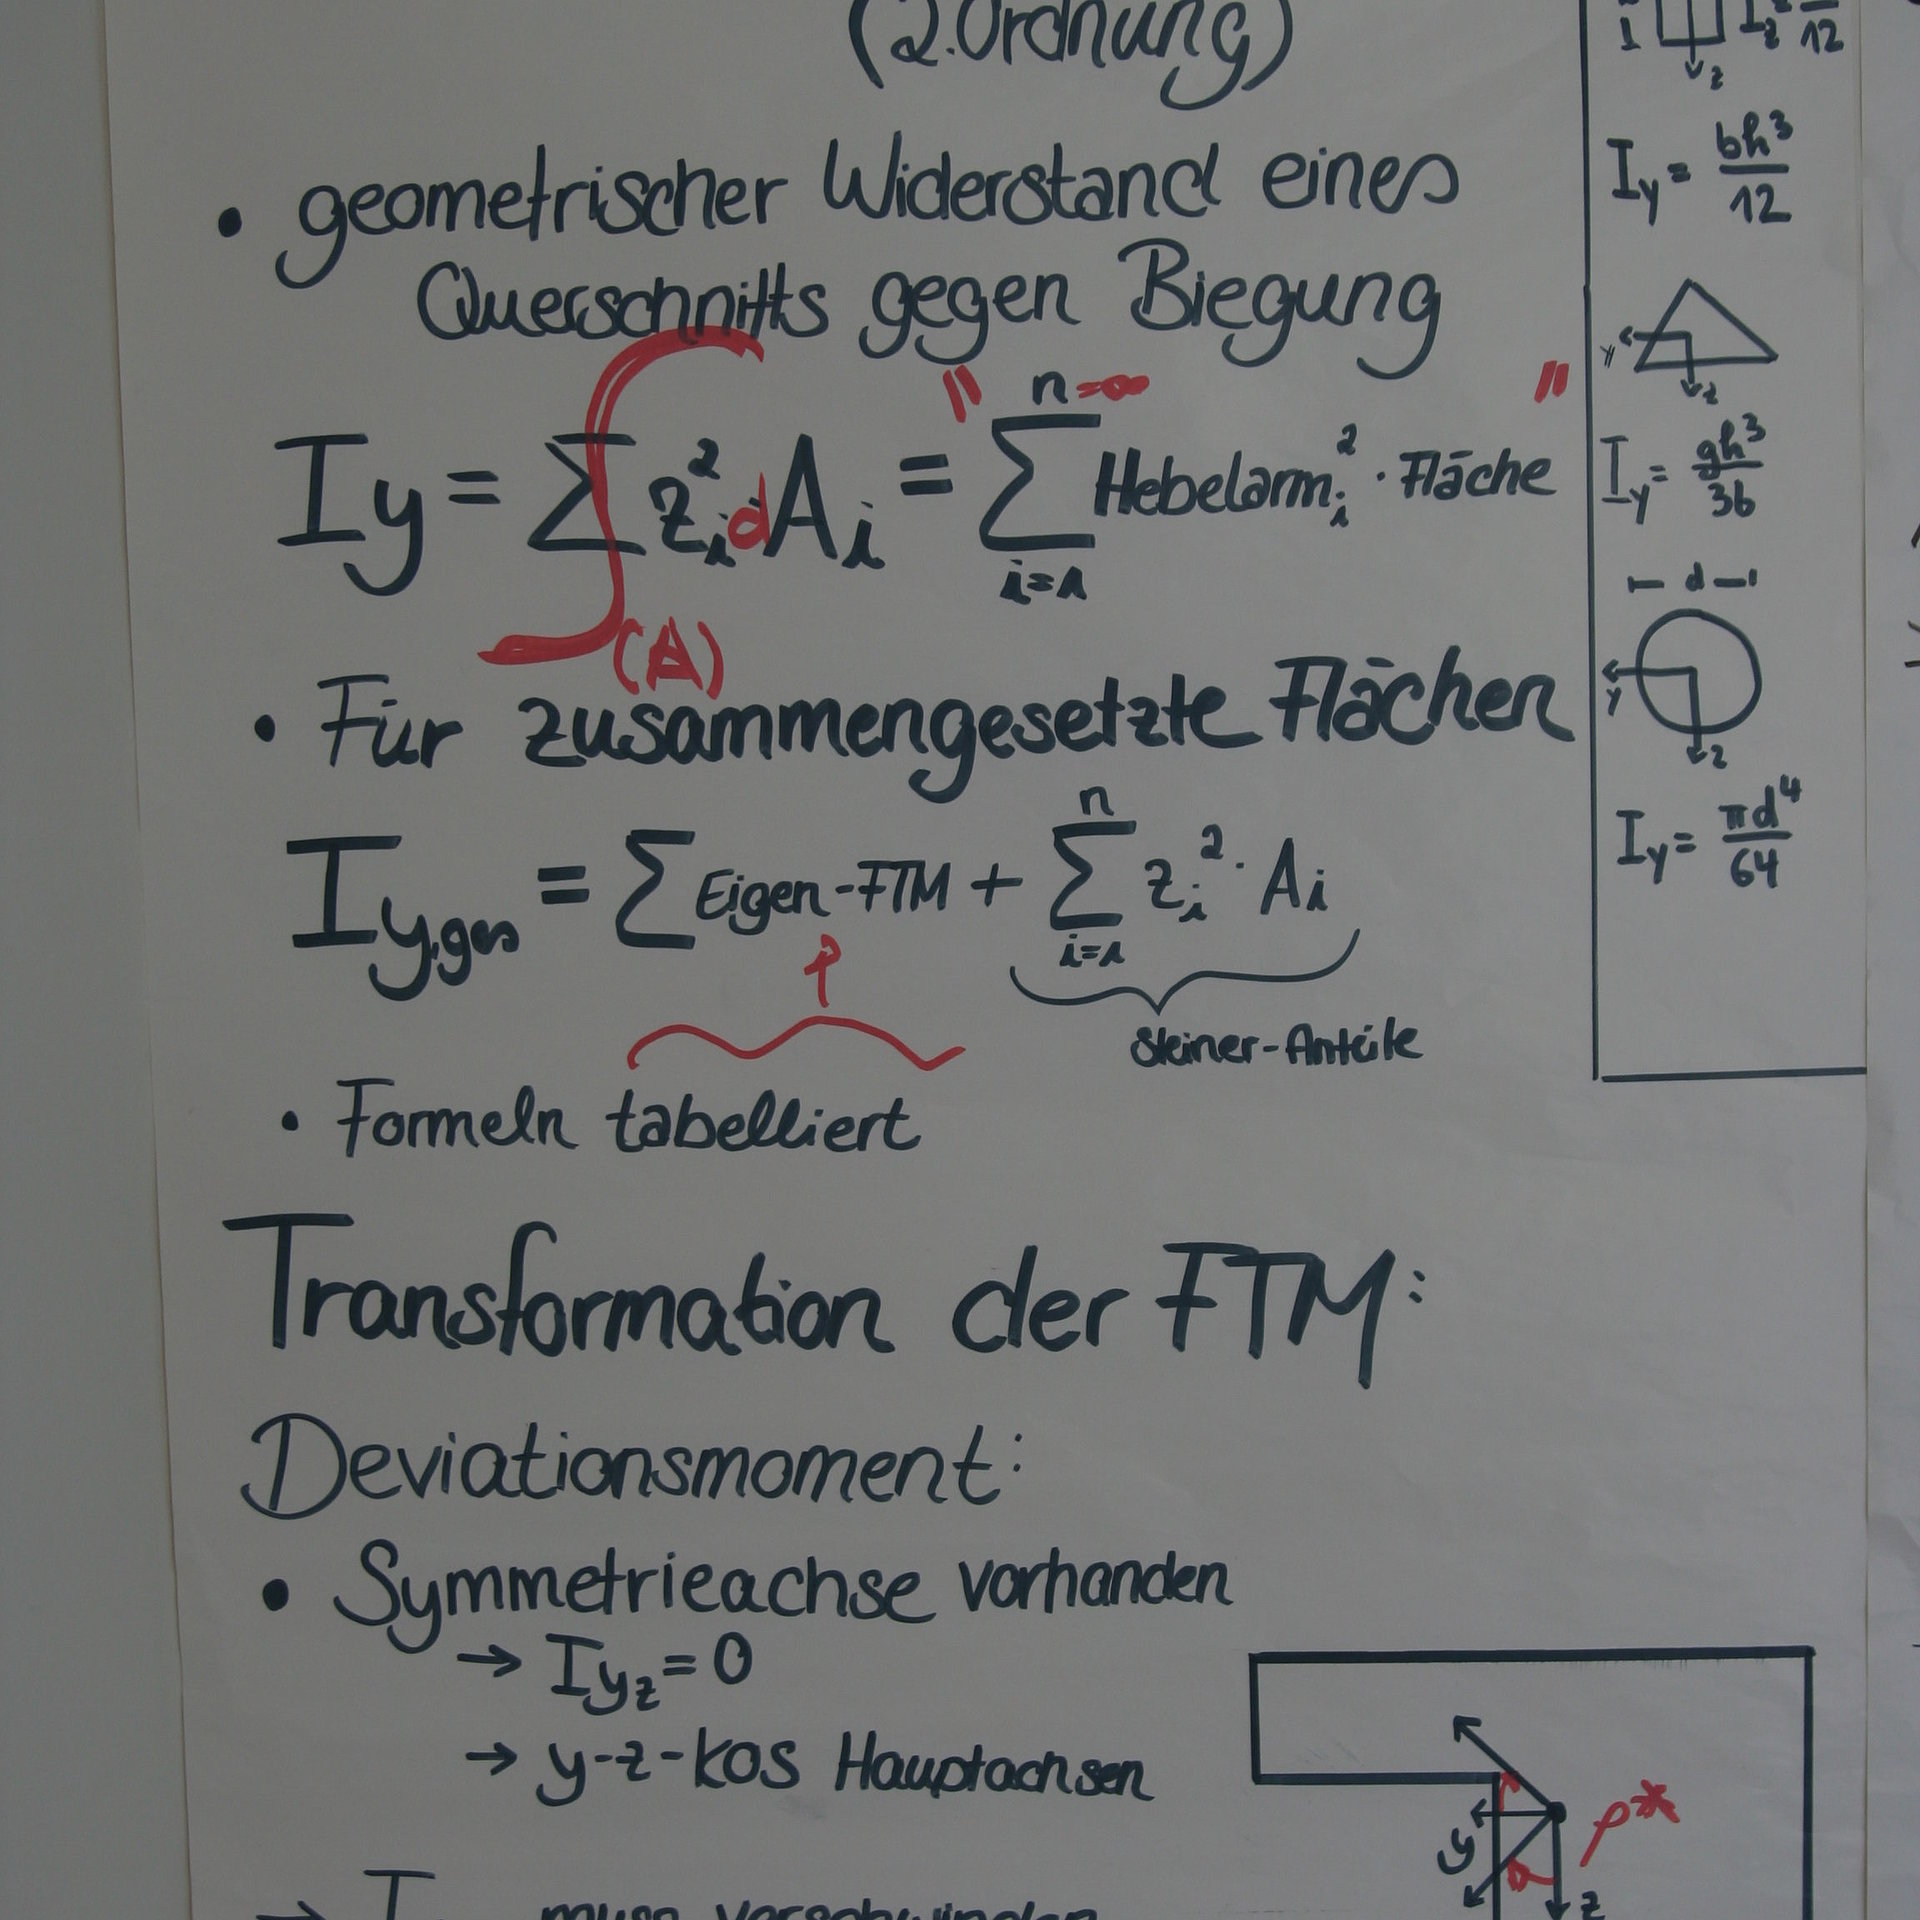 (2.Ordnung)
• geometrischer Widerstand eines
Querschnitts gegen Biegung
Iy = ∑ ∫ z_i² dA_i = " ∑ Hebelarm_i² · Fläche "
n=∞
i=1
(A)
• Für zusammengesetzte Flächen
Iy,ges = ∑ Eigen-FTM + ∑ z_i² · A_i
n
i=1
Steiner-Anteile
• Formeln tabelliert
Transformation der FTM:
Deviationsmoment:
• Symmetrieachse vorhanden
→ Iyz = 0
→ y-z-kos Hauptachsen
muss verschwinden
y
z
z
12
Iy = bh³/12
y
z
Iy = gh³/36
d
y
z
Iy = πd⁴/64